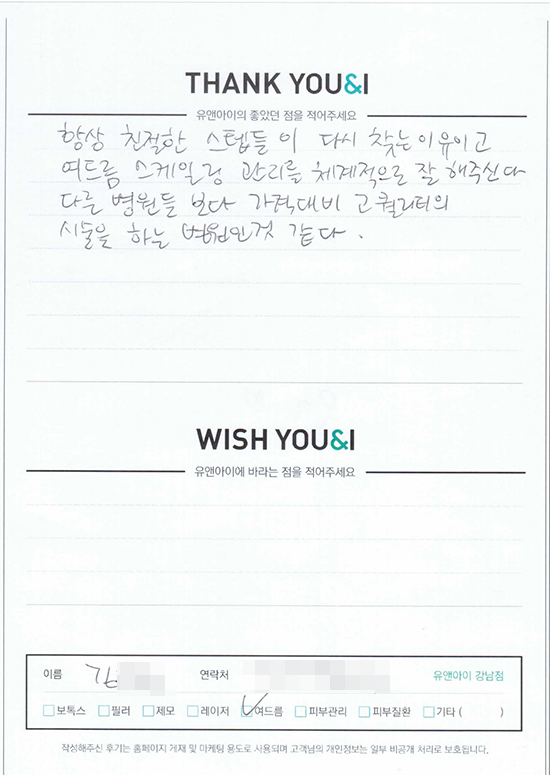 THANK YOU&I
유앤아이의 좋았던 점을 적어주세요
항상 친절한 스텝들이 다시 찾는이유이고
여드름 스케일링 관리를 체계적으로 잘 해주신다
다른 병원들 보다 가격대비 고퀄리티의
시술을 하는 병원인것 같다.
WISH YOU&I
유앤아이에 바라는 점을 적어주세요
이름 김 연락처 유앤아이 강남점
보톡스 필러 제모 레이저 여드름 피부관리 피부질환 기타 ( )
작성해주신 후기는 홈페이지 게재 및 마케팅 용도로 사용되며 고객님의 개인정보는 일부 비공개 처리로 보호됩니다.